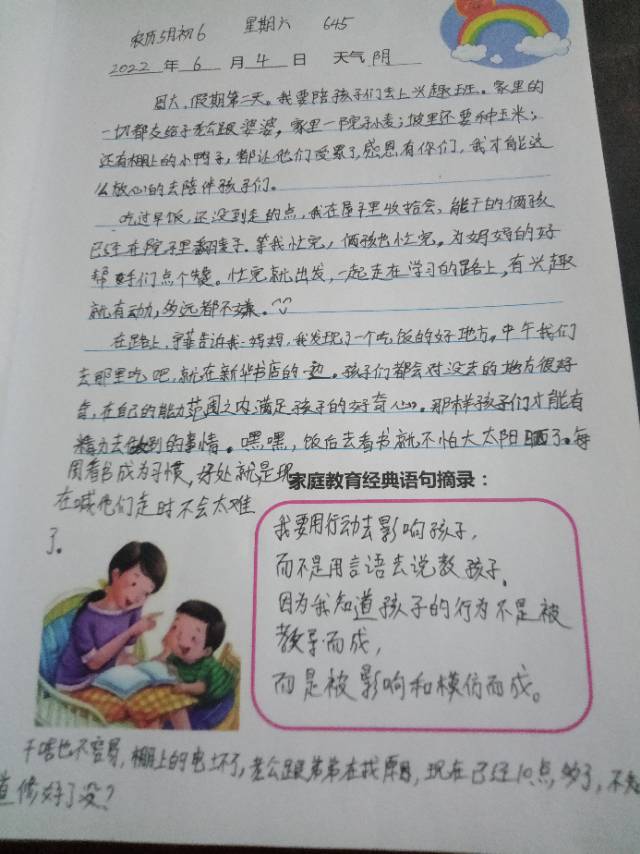 农历5月初6 星期六 645
2022年6月4日 天气阴
周六,假期第二天。我要陪孩子们去上兴趣班。家里的
一切都交给了老公跟婆婆,家里一院小麦;坡里还要种玉米;
还有棚上的小鸭子,都让他们受累了,感恩有你们,我才能这
么放心的去陪伴孩子们。
吃过早饭,还没到走的点,我在屋子里收拾会,能干的俩孩
已经在院子里翻麦子.等我忙完,俩孩也忙完。为妈妈的好
帮手们点个赞。忙完就出发,一起走在学习的路上,有兴趣
就有动力,多远都不嫌。
在路上,告诉我:妈妈,我发现了一个吃饭的好地方。中午我们
去那里吃吧,就在新华书店的一边。孩子们都会对没去的地方很好
奇,在自己的能力范围之内满足孩子的好奇心。那样孩子们才能有
精力去做别的事情。嘿嘿,饭后去看书就不怕大太阳晒了。每
周看书成为习惯,好处就是现
在喊他们走时不会太难
了。
家庭教育经典语句摘录:
我要用行动去影响孩子,
而不是用言语去说教孩子.
因为我知道孩子的行为不是被
教导而成,
而是被影响和模仿而成。
干啥也不容易,棚上的电坏了,老公跟弟弟在找原因,现在已经10点多了,不知
道修好了没?